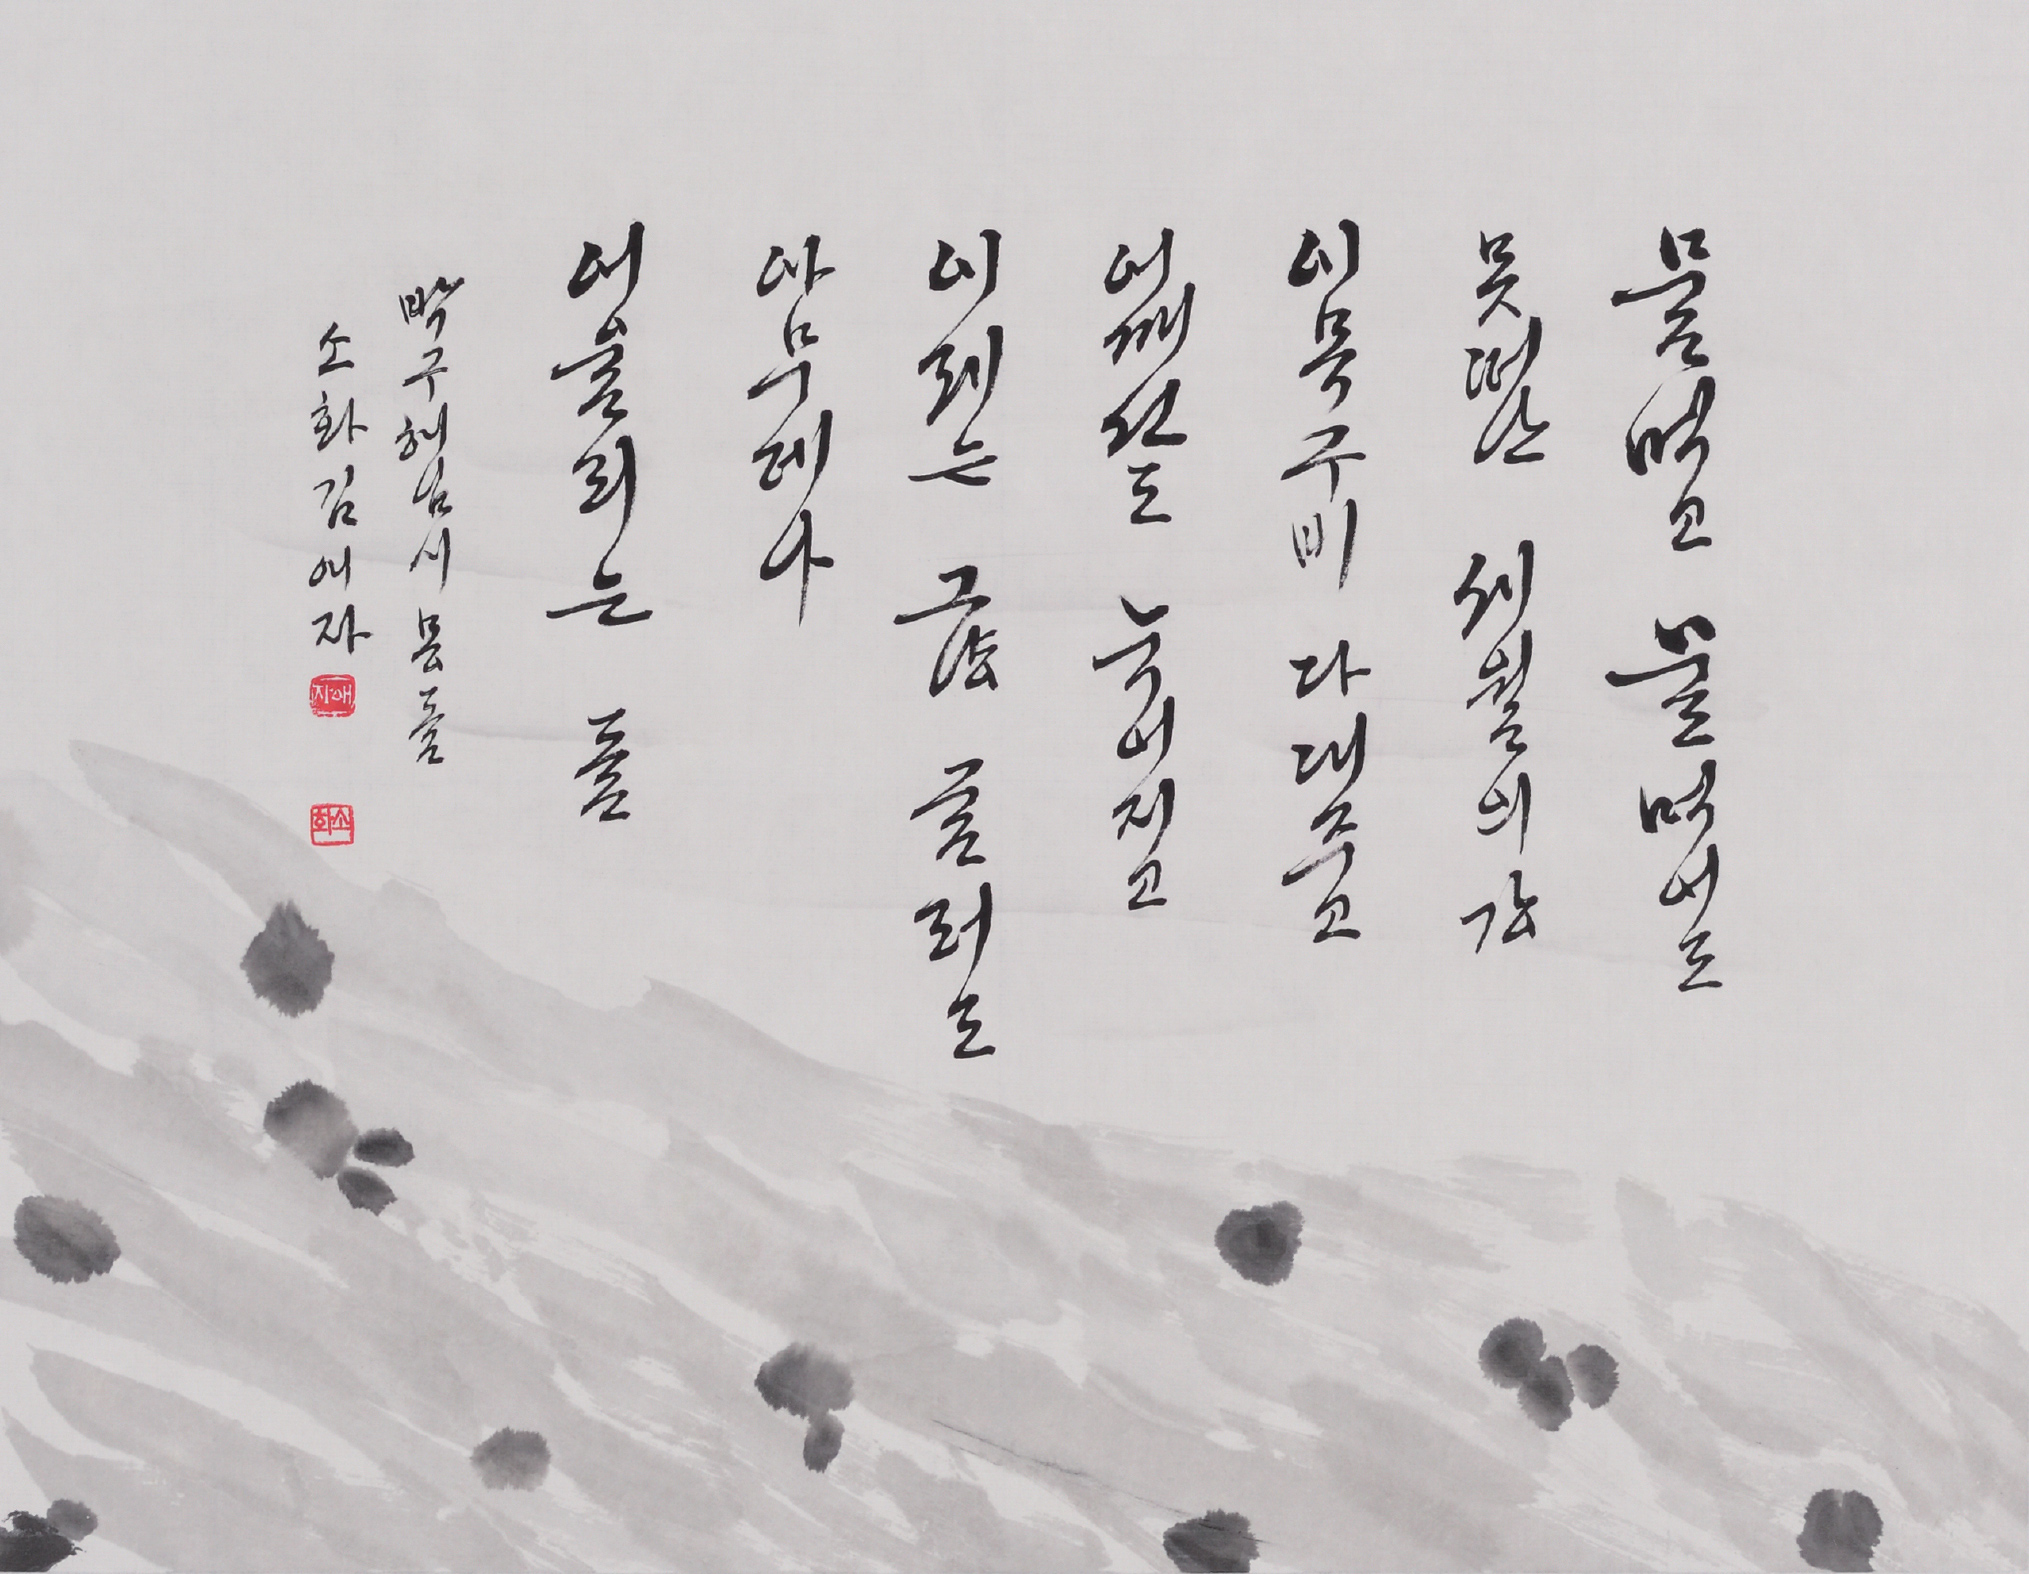 물먹고 불먹어도
못떠난 세월의 강
이목구비 다 내주고
어깨선도 눅어지고
이제는 그냥 굴러도
아무데나
어울리는 돌
박구하님 시 몽돌
소화 김애자
애자
소화